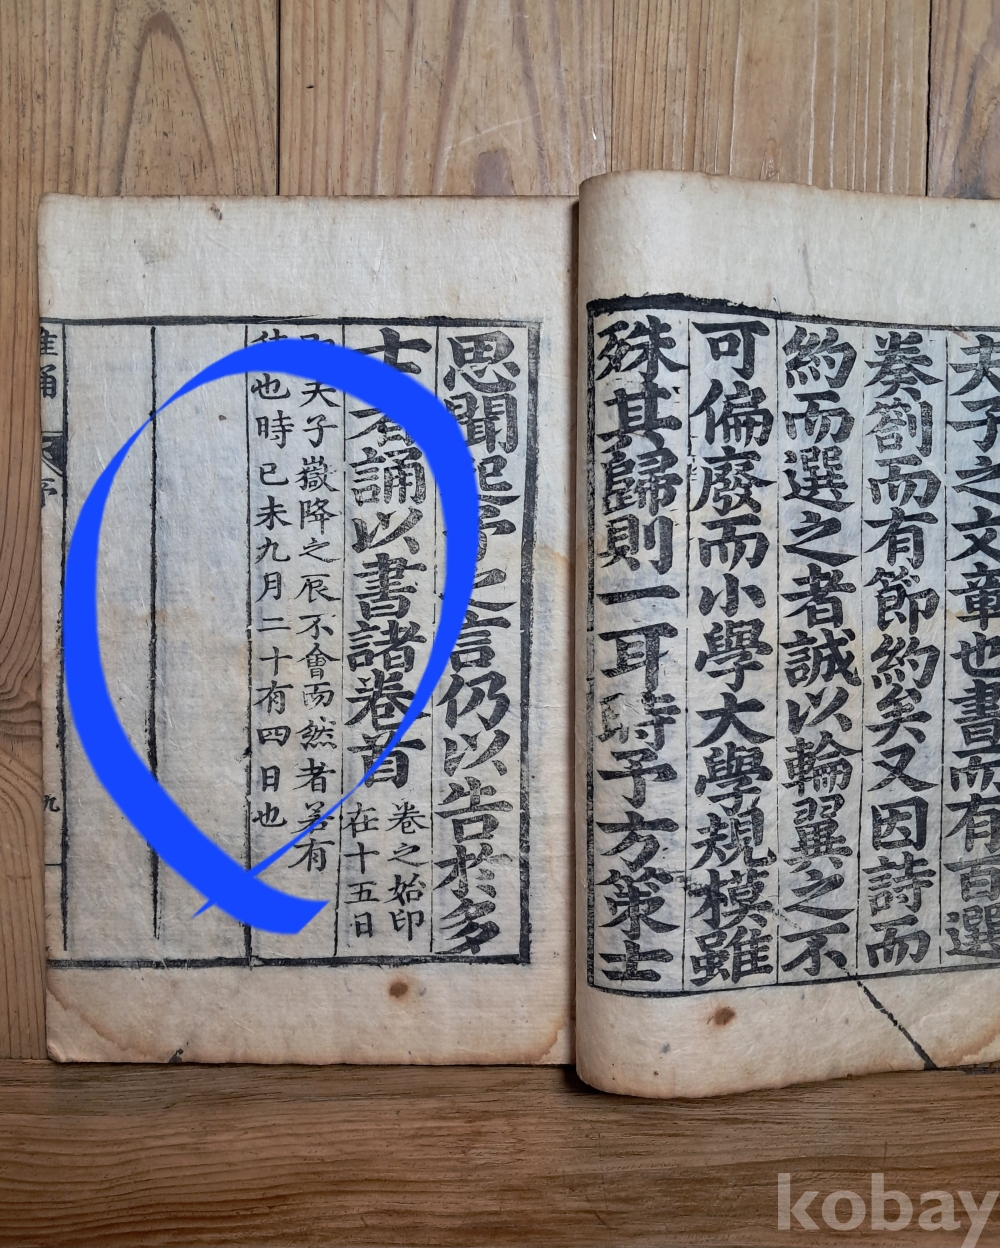 夫子之文章也晝而有百選
奏劄而有節約矣又因詩而
約而選之者誠以輪翼之不
可偏廢而小學大學規模雖
殊其歸則一耳時予方策士
思聞起予之言仍以告於多
士者誦以書諸卷首
卷之始印
在十五日
夫子嶽降之辰不會而然者若有
也時己未九月二十有四日也
誦
序
九
kobay